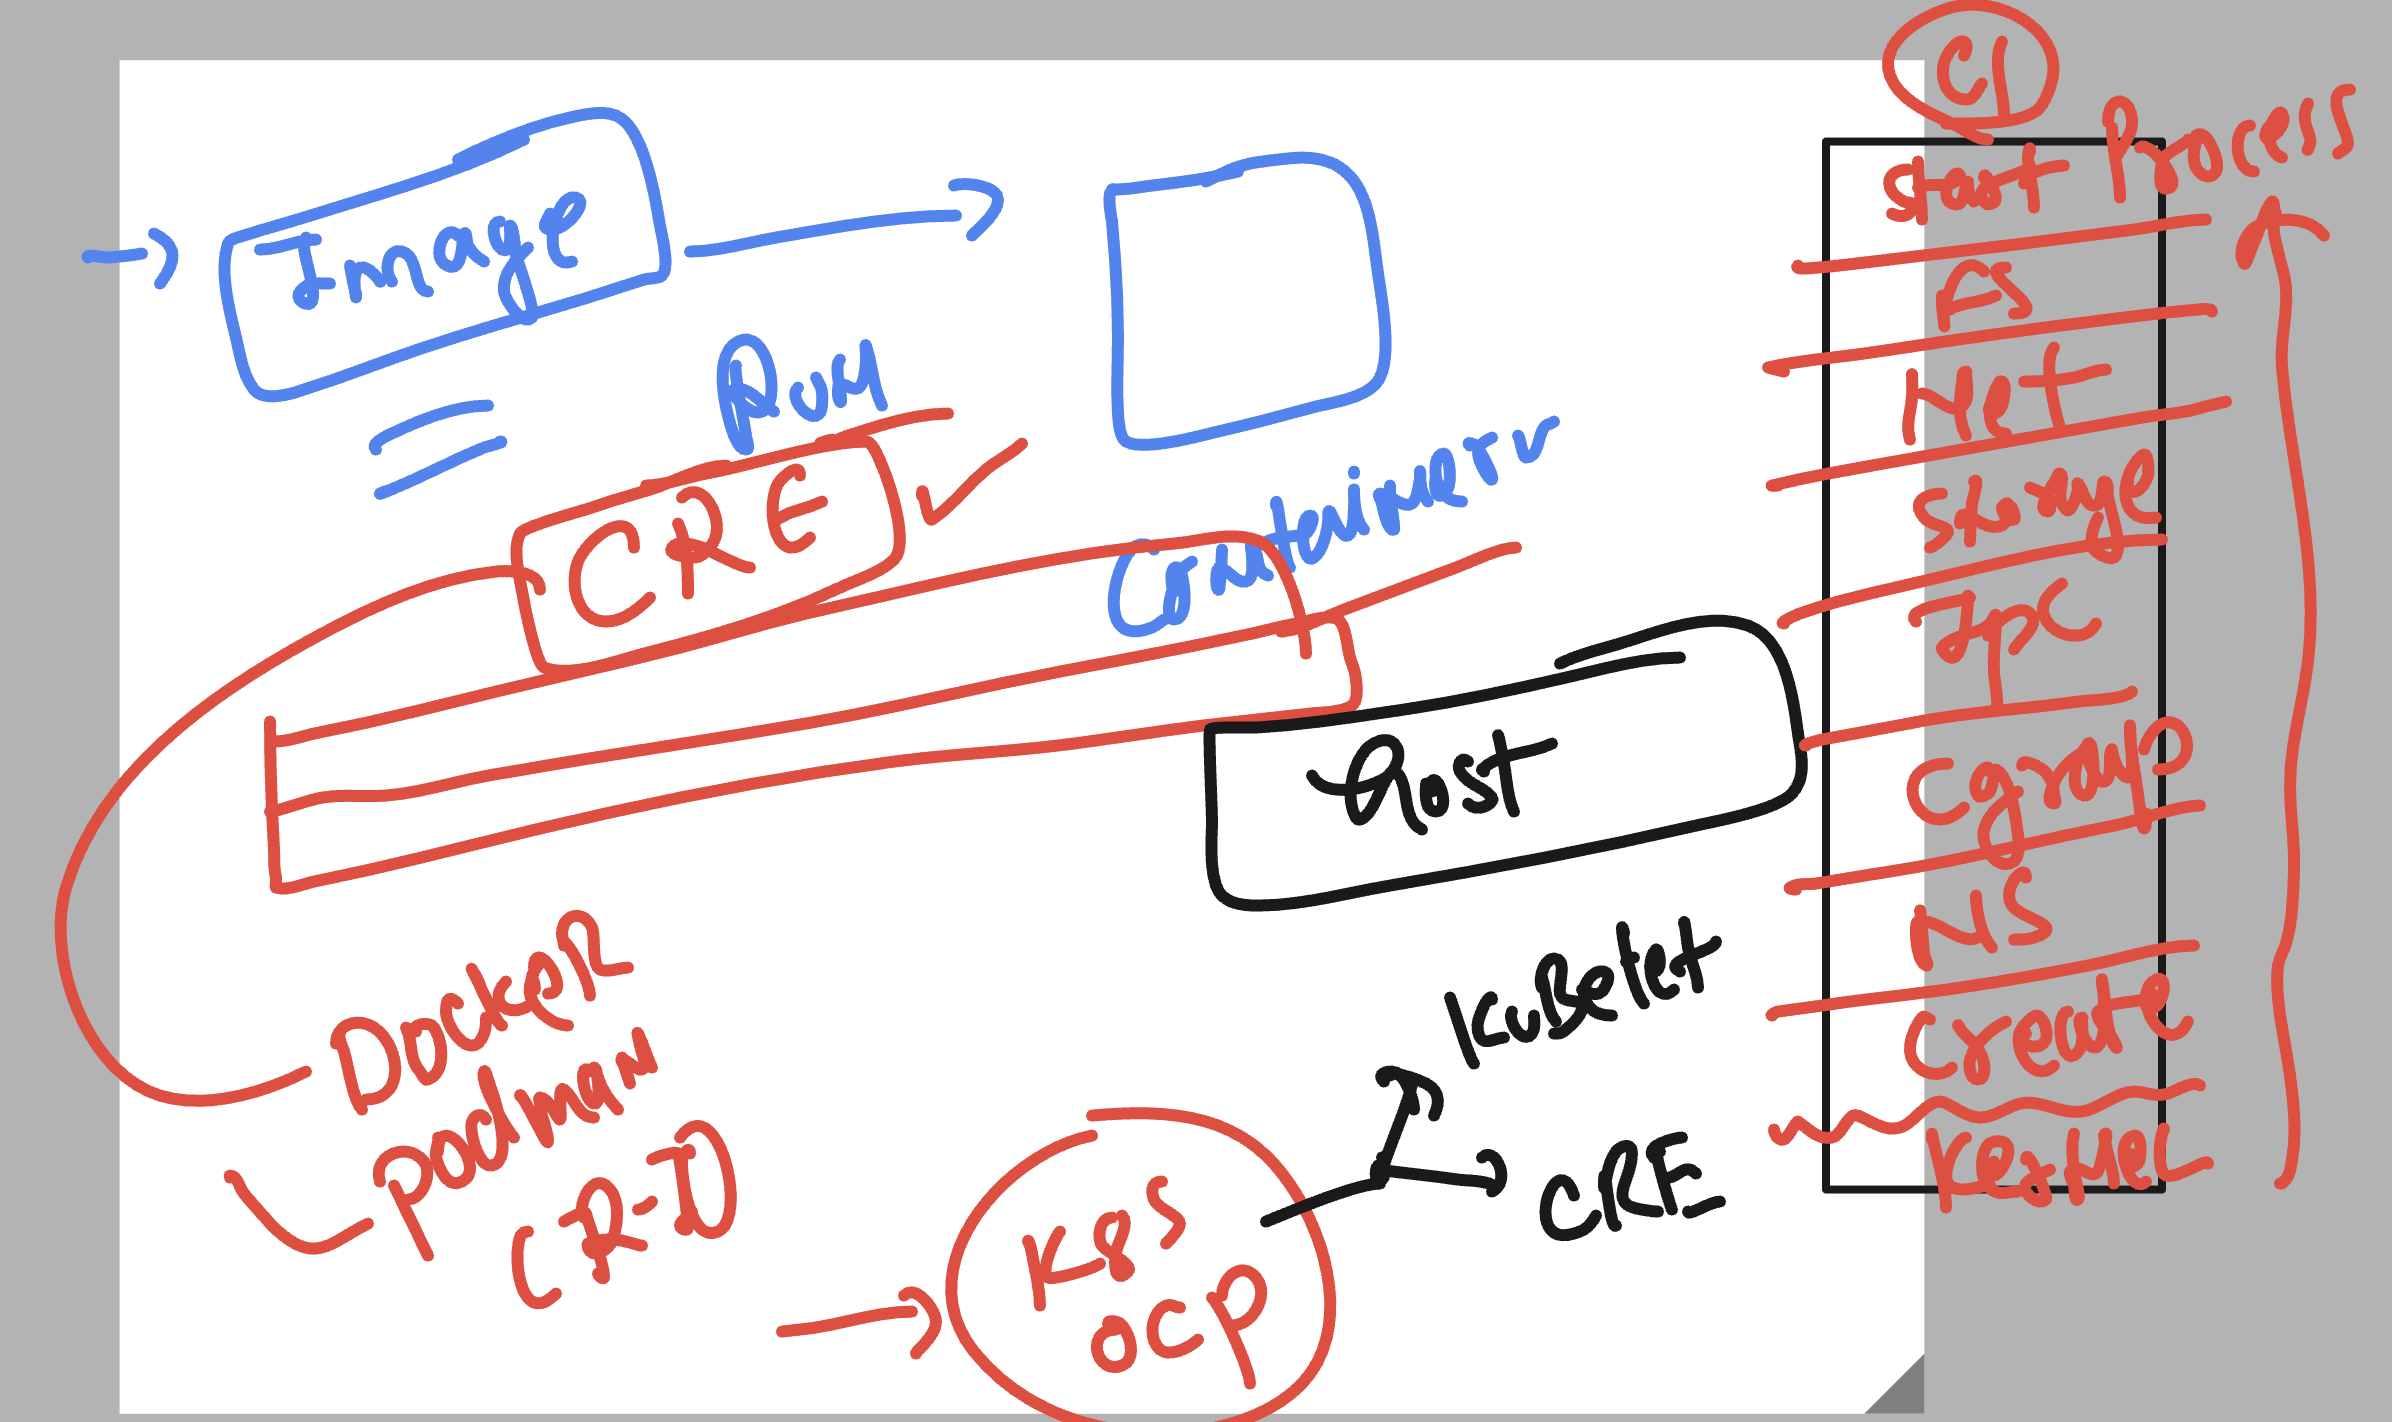 Image
Run
CRE
Container
Host
Docker
Podman
CR-I)
K8S
OCP
KuBelet
CRE
C1
Start Process
FS
Net
Storage
IPC
Cgroup
NS
Create
Kernel